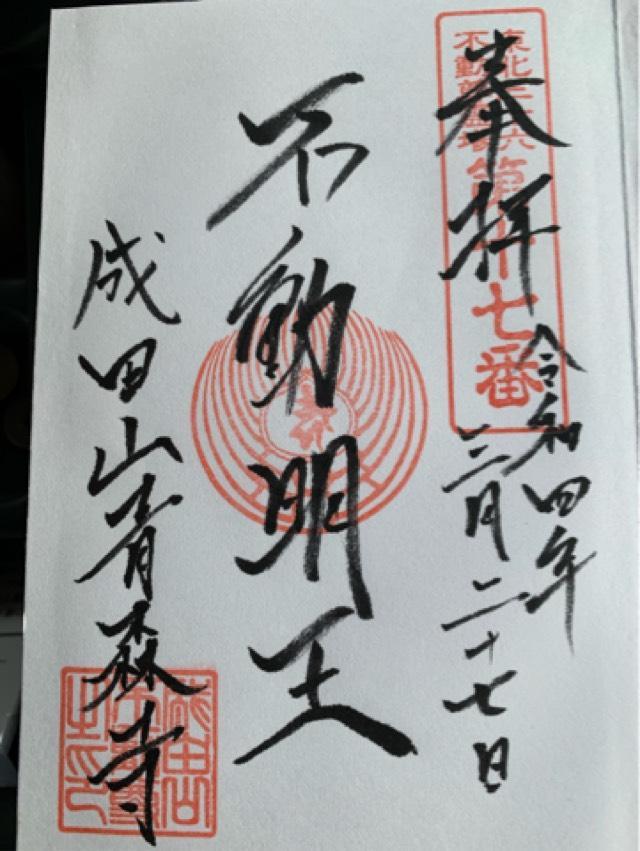 奉拝
東北三十六
不動尊霊場
第十七番
令和四年
三月二十七日
不動明王
成田山青森寺